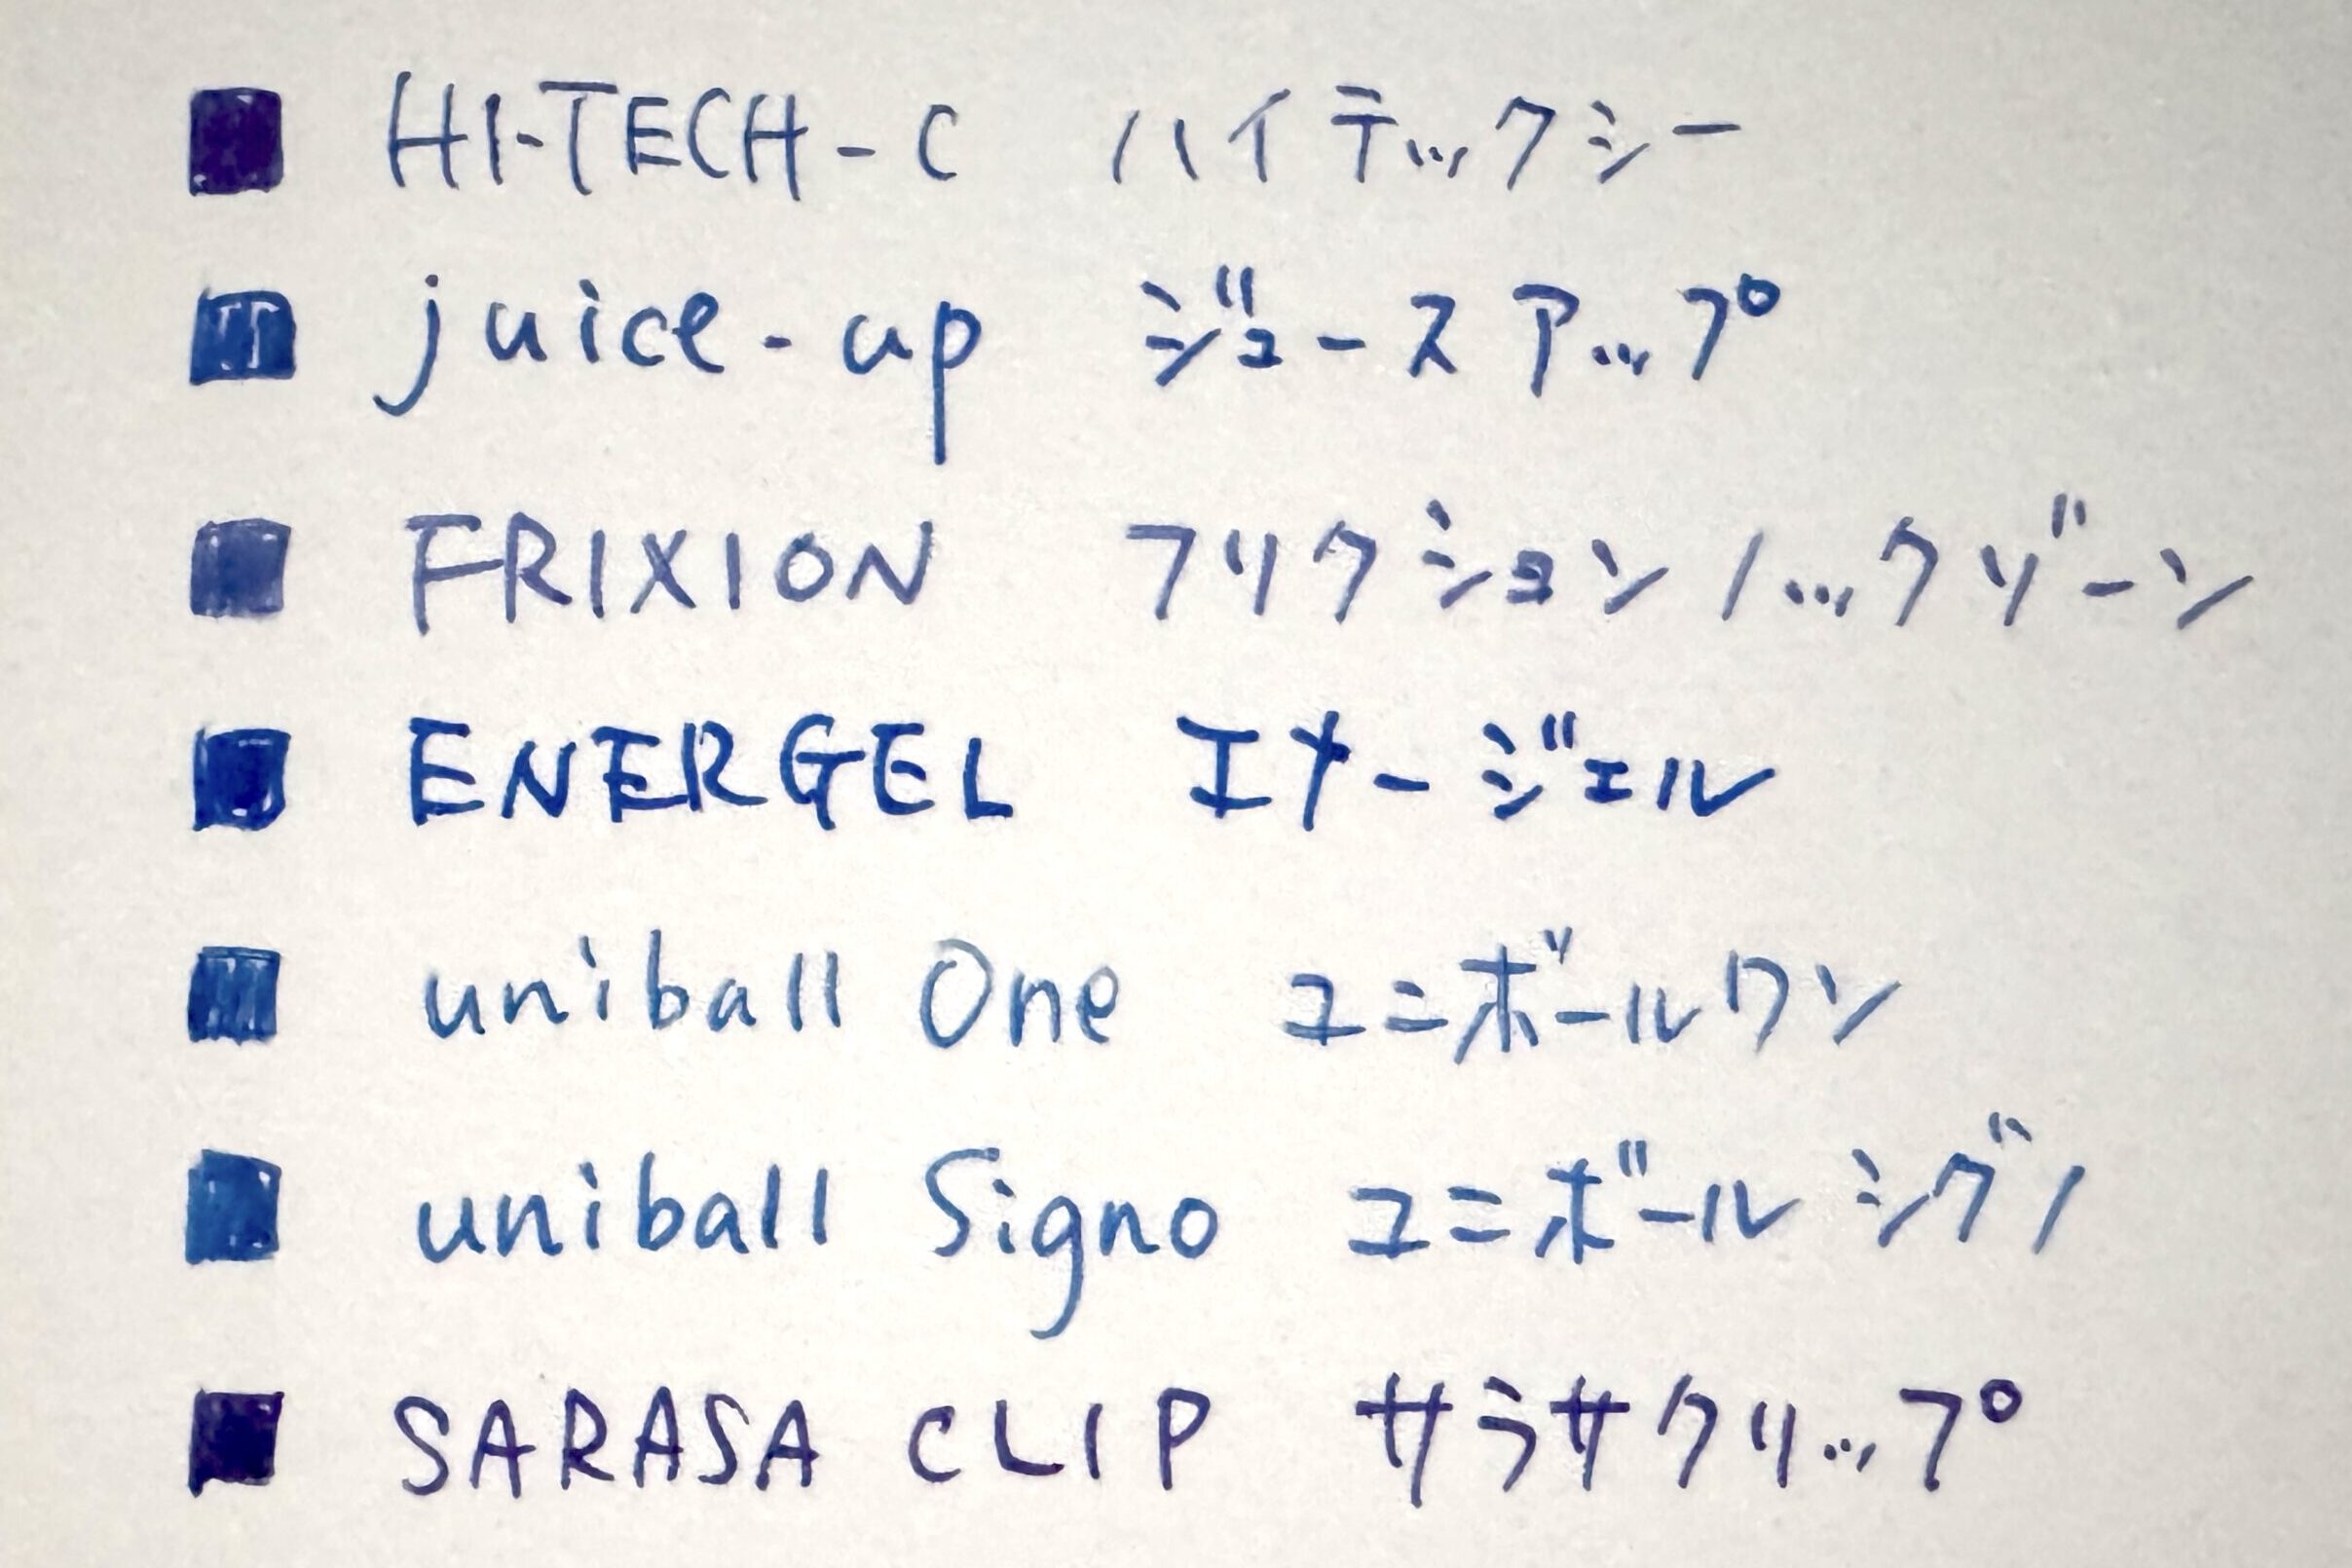 HI-TECH-C ハイテックシー
juice-up ジュースアップ
FRIXION フリクションノックゾーン
ENERGEL エナージェル
uniball One ユニボールワン
uniball Signo ユニボール シグノ
SARASA CLIP サラサクリップ